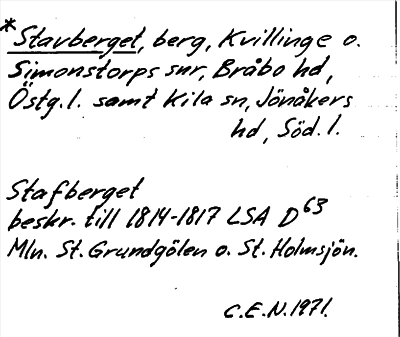 *Stavberget, berg, Kvillinge o.
Simonstorps snr, Bråbo hd,
Östg.l. samt Kila sn, Jönåkers
hd, Söd.l.
Stafberget
beskr. till 1814-1817 LSA D63
Mln. St. Grundgölen o. St. Holmsjön.
C.E.N. 1971.